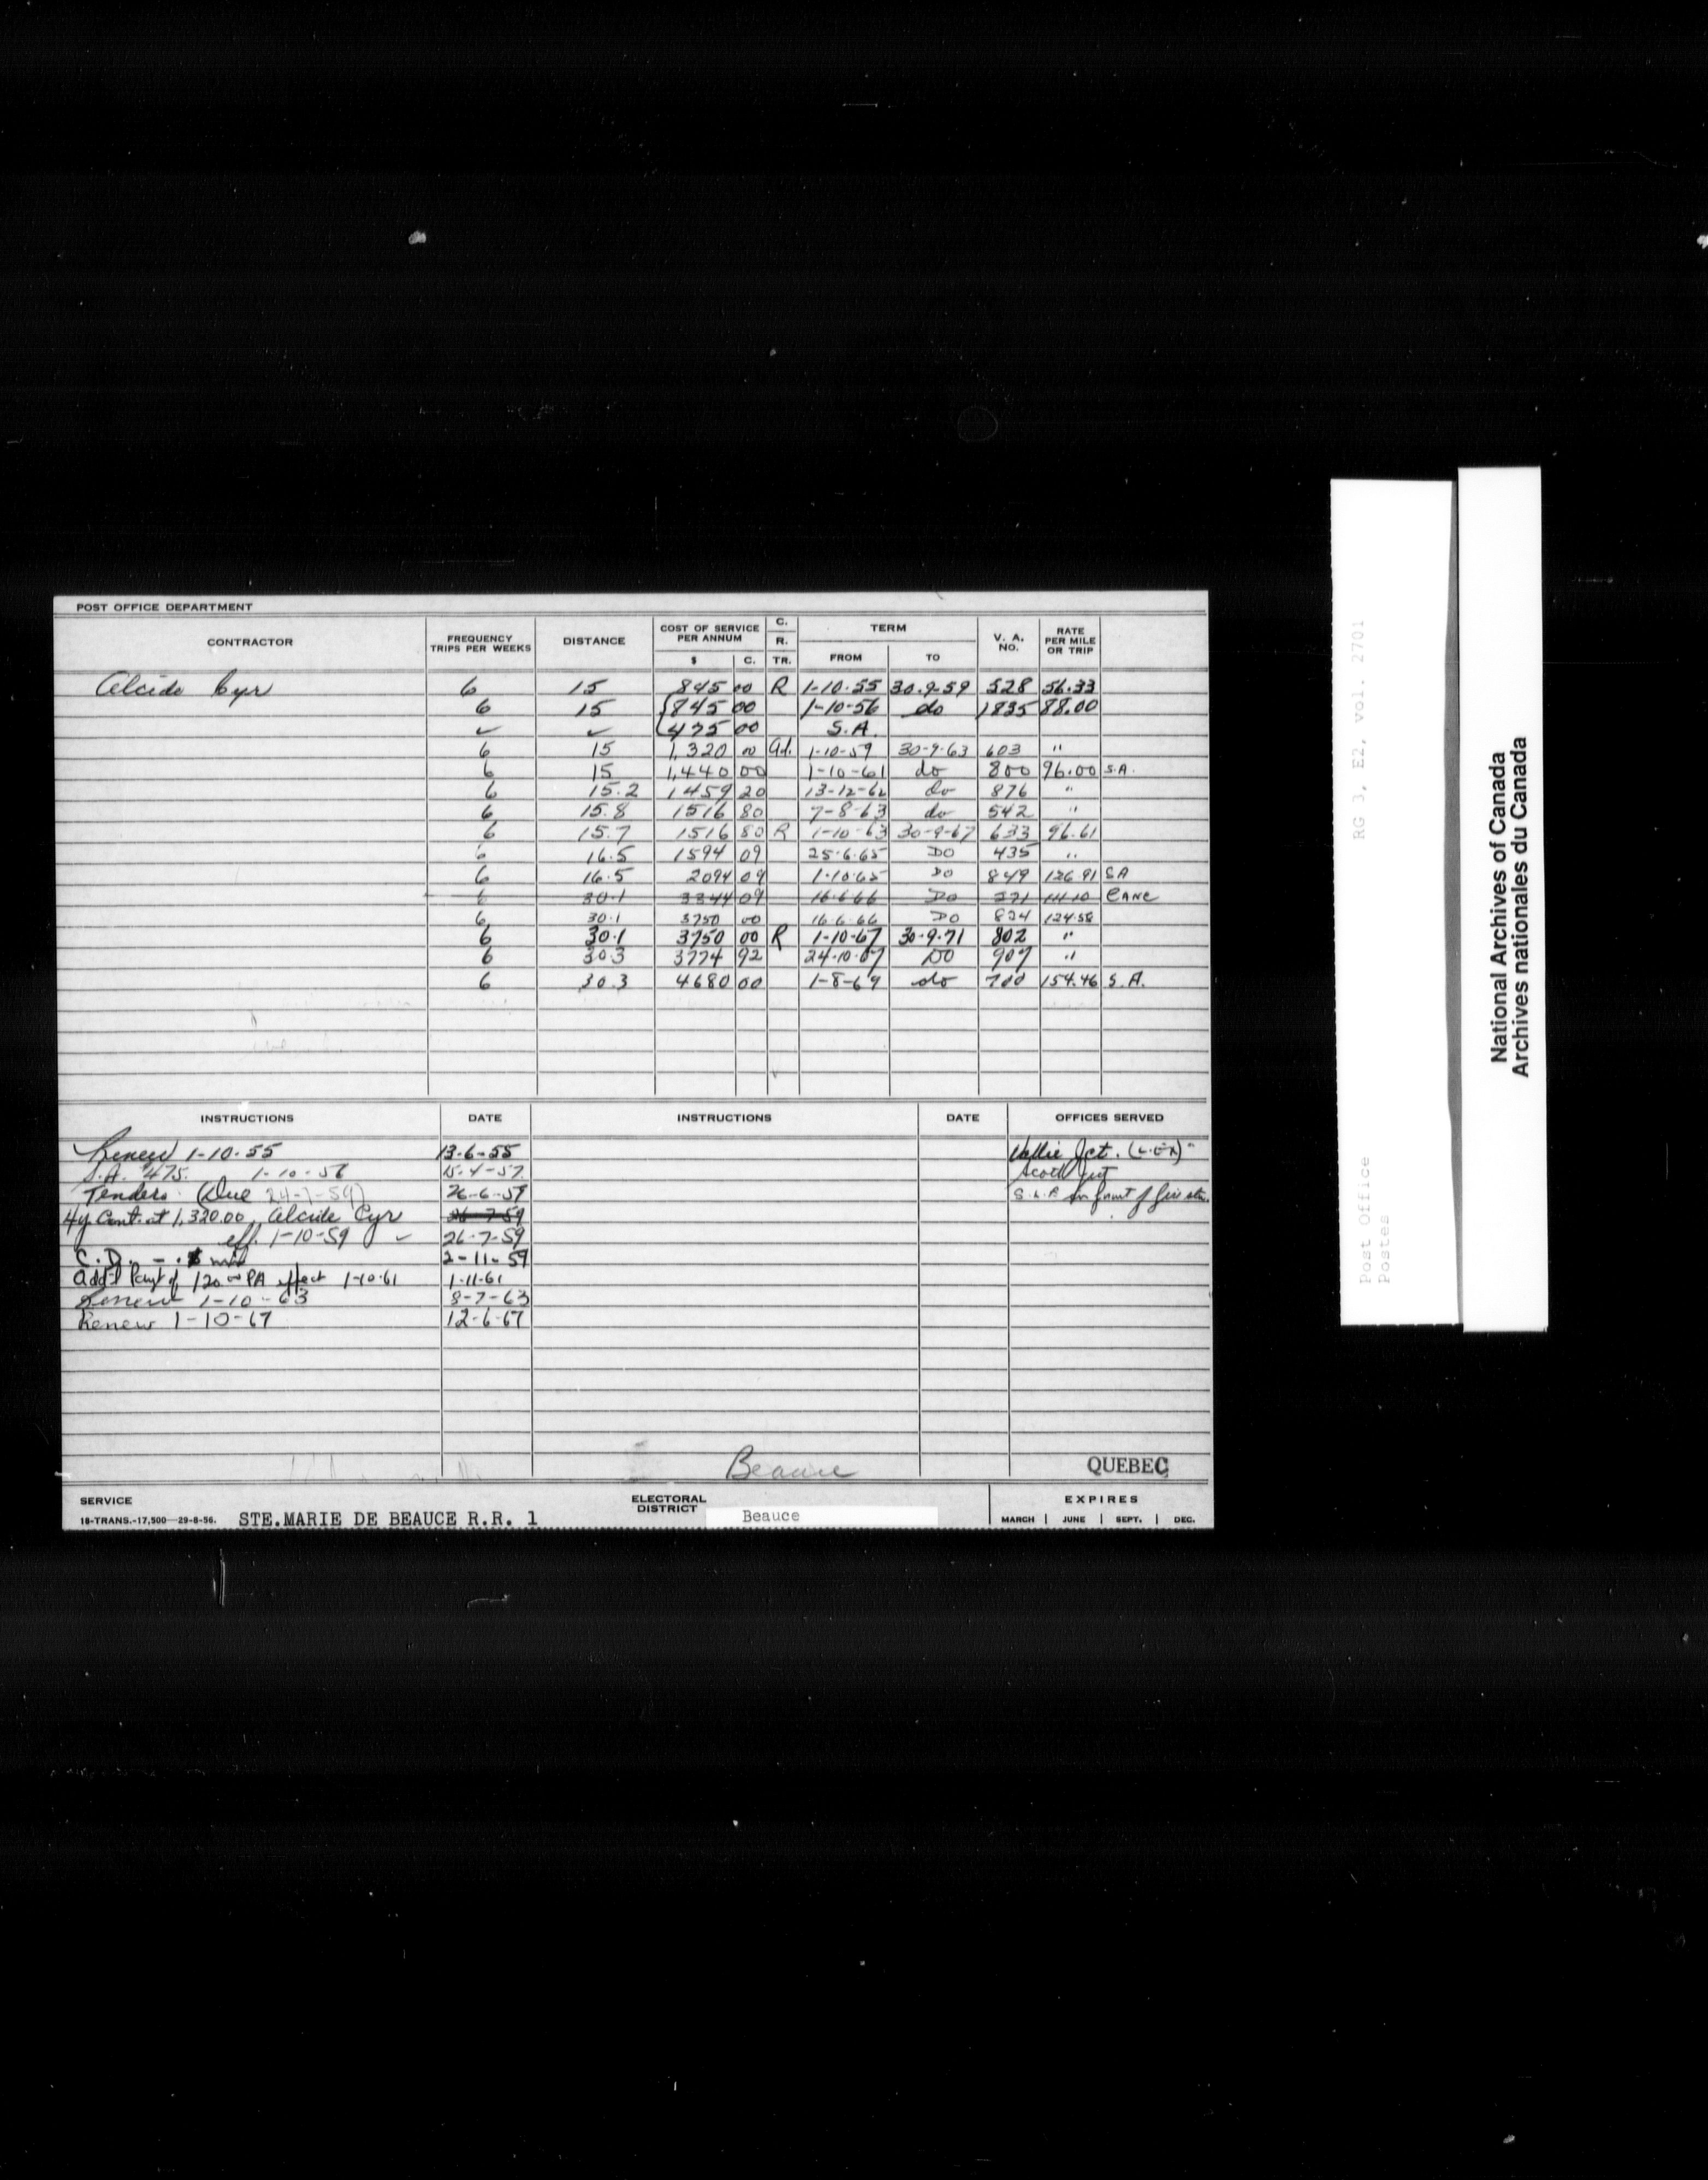 POST OFFICE DEPARTMENT
CONTRACTOR FREQUENCY TRIPS PER WEEKS DISTANCE COST OF SERVICE PER ANNUM $ C. C. R. TR. TERM FROM TO V. A. NO. RATE PER MILE OR TRIP
Alcide Cyr 6 15 845 00 R 1-10-55 30-9-59 528 56.33
6 15 {845 00 1-10-56 do 1835 88.00
✓ ✓ {475 00 S.A.
6 15 1,320 00 Ad. 1-10-59 30-9-63 603 "
6 15 1,440 00 1-10-61 do 800 96.00 S.A.
6 15.2 1459 20 13-12-62 do 876 "
6 15.8 1516 80 7-8-63 do 542 "
6 15.7 1516 80 R 1-10-63 30-9-67 633 96.61
6 16.5 1594 09 25-6-65 DO 435 "
6 16.5 2094 09 1-10-65 DO 849 126.91 SA
6 30.1 3344 09 16-6-66 Do 111.10 CANC
6 30.1 3750 00 16-6-66 DO 824 124.58
6 30.1 3750 00 R 1-10-67 30-9-71 802 "
6 30.3 3774 92 24-10-67 DO 907 "
6 30.3 4680 00 1-8-69 do 700 154.46 S.A.
INSTRUCTIONS DATE INSTRUCTIONS DATE OFFICES SERVED
Renew 1-10-55 13-6-55 Vallie Jct.
S.A. 475. 1-10-56 15-4-57 Scott Jct
Tenders (Due 24-7-59) 26-6-59 in front of
4 y Cont. at 1,320.00 Alcide Cyr 26-7-59
eff. 1-10-59 ✓ 26-7-59
C.D. 2-11-59
Add'l Paym't of 120 00 PA effect 1-10-61 1-11-61
Renew 1-10-63 8-7-63
Renew 1-10-67 12-6-67
Beauce QUEBEC
SERVICE ELECTORAL DISTRICT EXPIRES
18-TRANS.-17,500—29-8-56. STE.MARIE DE BEAUCE R.R. 1 Beauce MARCH JUNE SEPT. DEC.
RG 3, E2, vol. 2701
Post Office
Postes
National Archives of Canada
Archives nationales du Canada